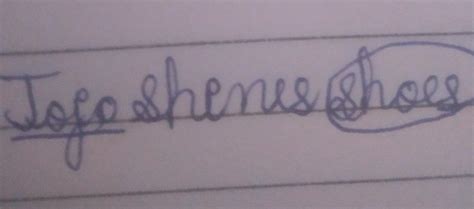 Jojo shenes shoes